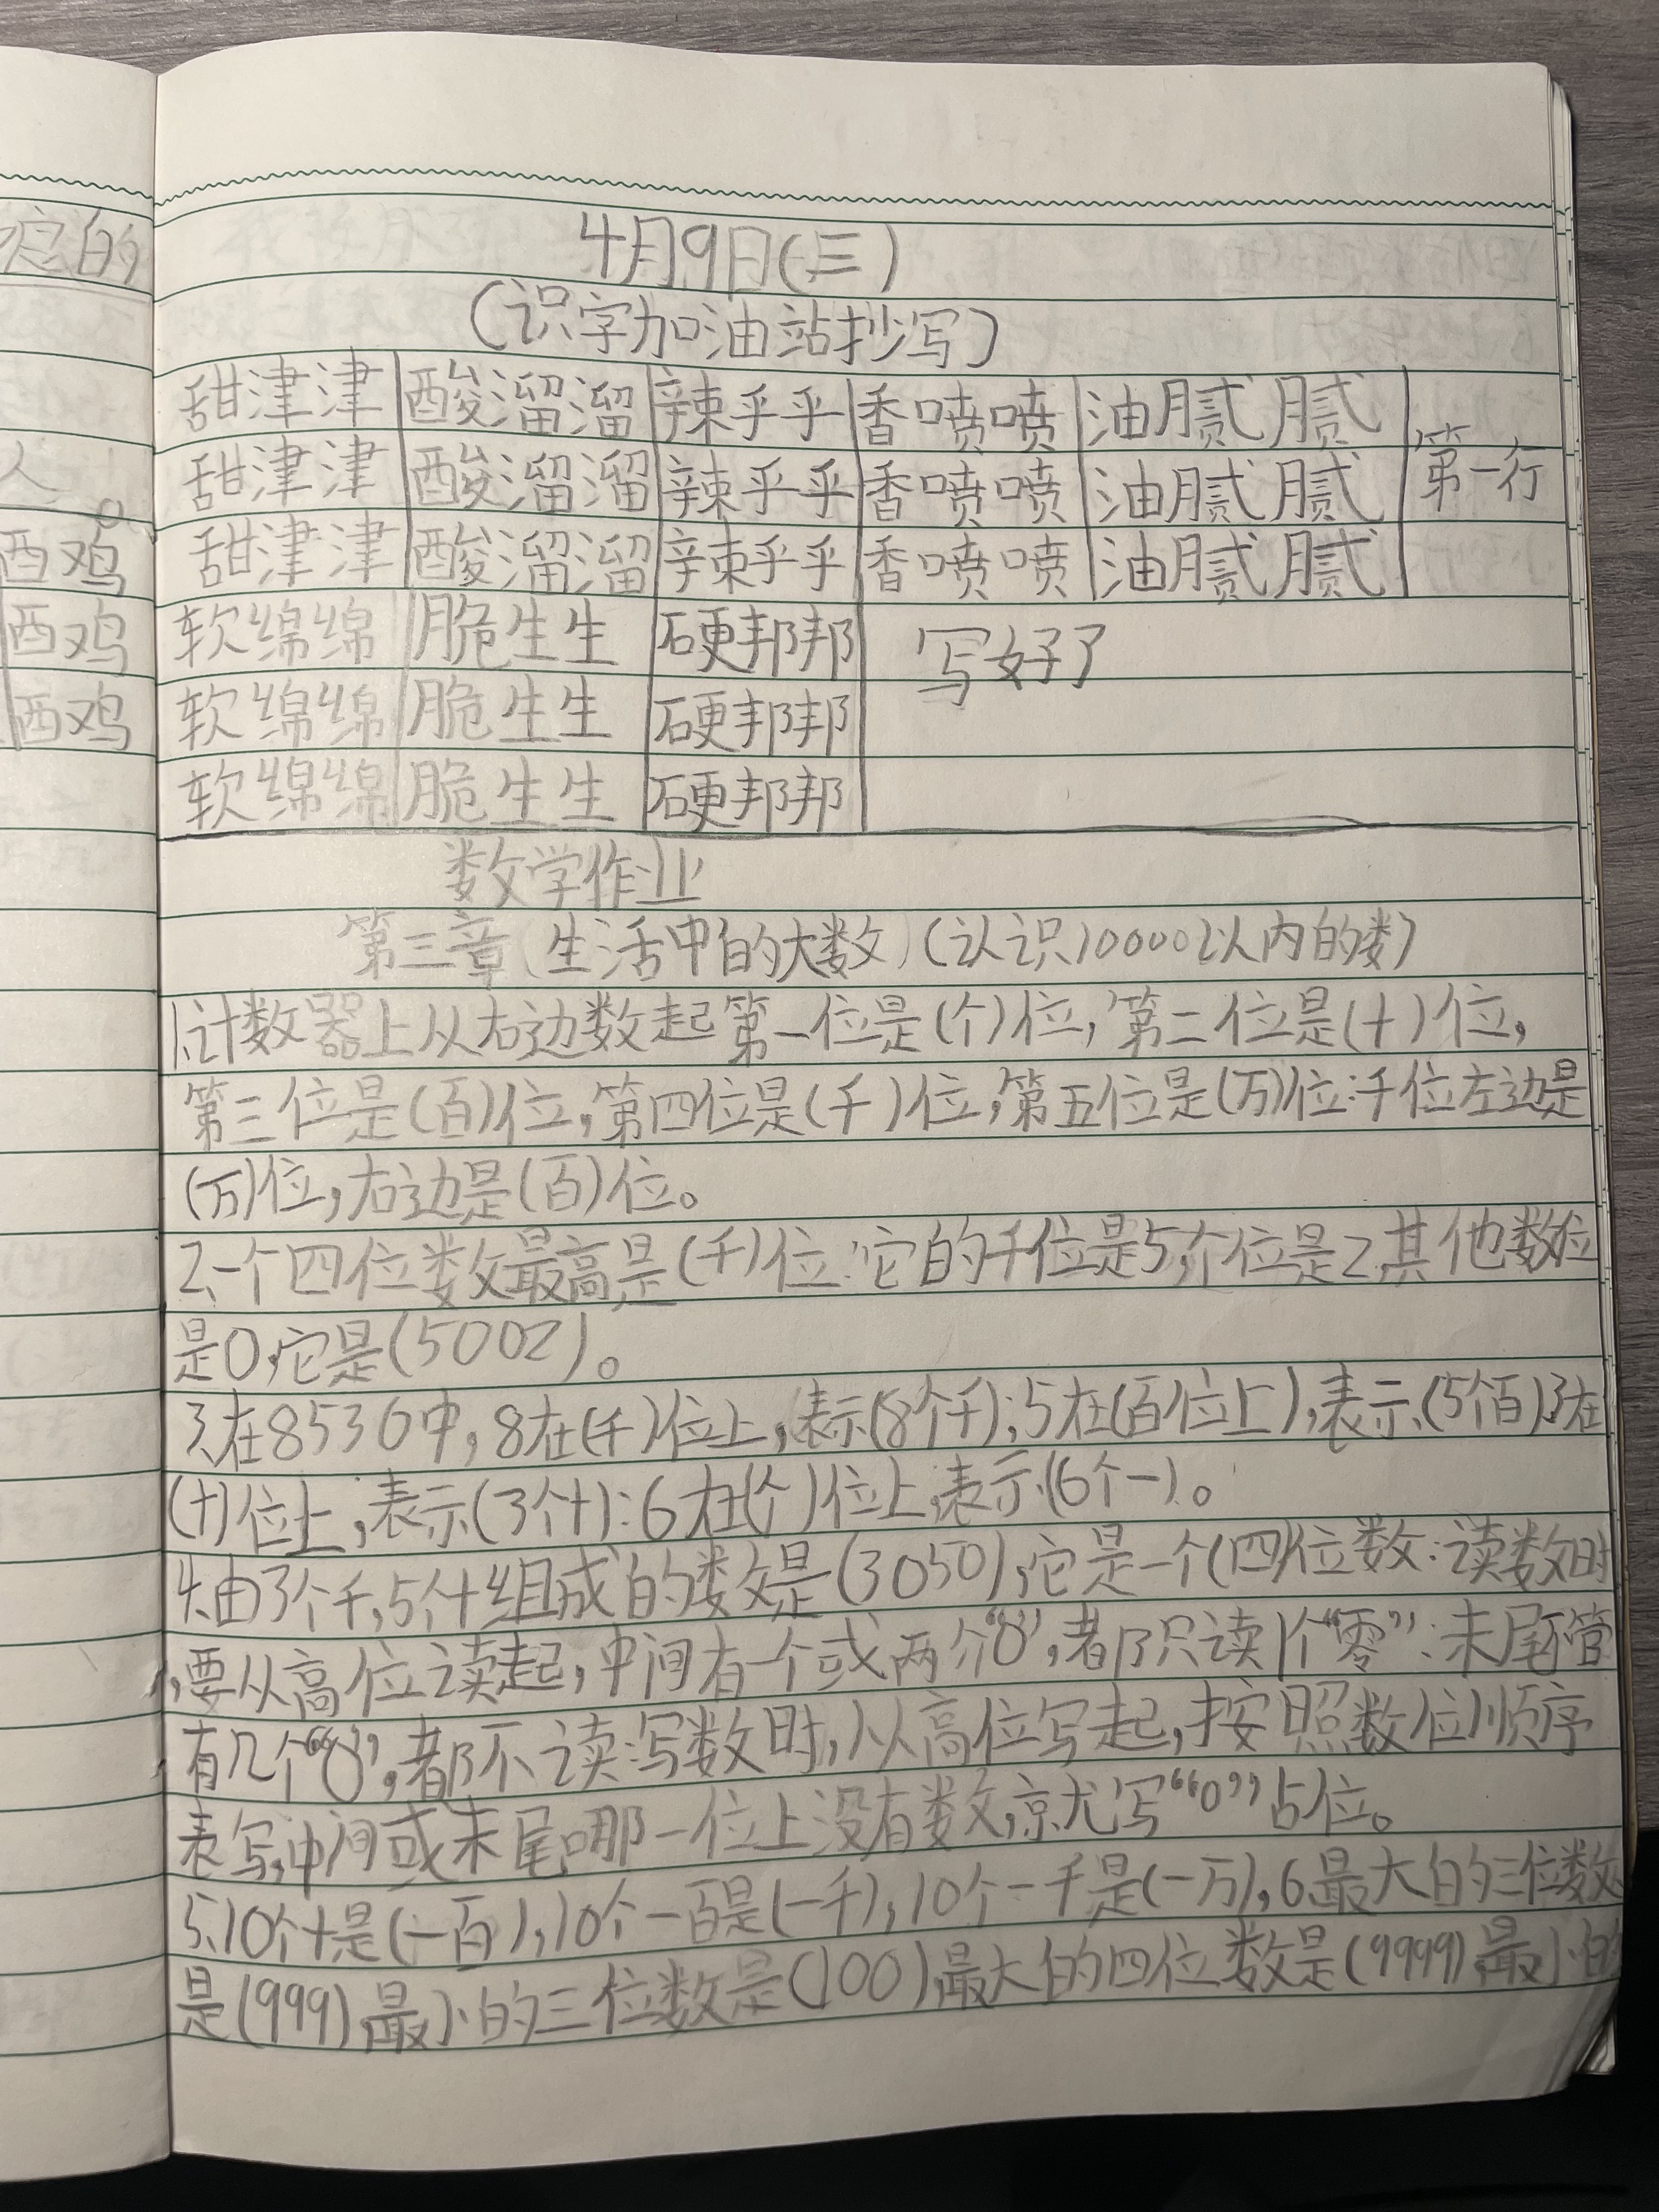 定的
人
。
西鸡
西鸡
西鸡
4月9日(三)
(识字加油站抄写)
甜津津 酸溜溜 辣乎乎 香喷喷 油腻腻
甜津津 酸溜溜 辣乎乎 香喷喷 油腻腻 第一行
甜津津 酸溜溜 辣乎乎 香喷喷 油腻腻
软绵绵 脆生生 硬邦邦 写好了
软绵绵 脆生生 硬邦邦
软绵绵 脆生生 硬邦邦
数学作业
第三章(生活中的大数)(认识10000以内的数)
1.计数器上从右边数起第一位是(个)位,第二位是(十)位,
第三位是(百)位,第四位是(千)位,第五位是(万)位:千位左边是
(万)位,右边是(百)位。
2、一个四位数最高是(千)位:它的千位是5,个位是2,其他数位
是0,它是(5002)。
3、在8536中,8在(千)位上,表示(8个千);5在(百位上),表示(5个百)3在
(十)位上,表示(3个十):6在(个)位上,表示(6个一)。
4、由3个千,5个十组成的数是(3050),它是一个(四)位数:读数时
,要从高位读起,中间有一个或两个“0”,都只读1个“零”:末尾不管
有几个“0”,都不读:写数时,从高位写起,按照数位顺序
表写,中间或末尾哪一位上没有数,就写“0”占位。
5、10个十是(一百),10个一百是(一千),10个一千是(一万),6最大的三位数
是(999),最小的三位数是(100),最大的四位数是(9999),最小的